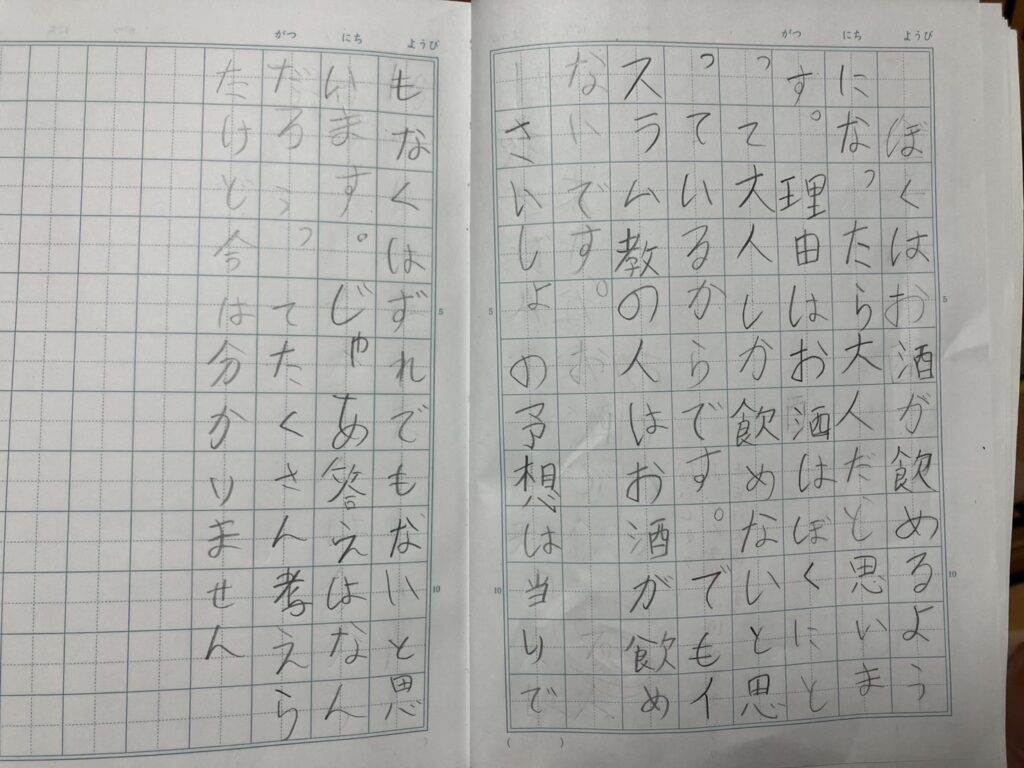 がつ にち ようび
ぼくはお酒が飲めるよう
になったら大人だと思いま
す。理由はお酒はぼくにと
って大人しか飲めないと思
っているからです。でもイ
スラム教の人はお酒が飲め
ないです。
さいしよの予想は当りで
5
10
5
10
がつ にち ようび
もなくはずれでもないと思
います。じゃあ答えはなん
だろうってたくさん考えら
たけど今は分かりません
5
10